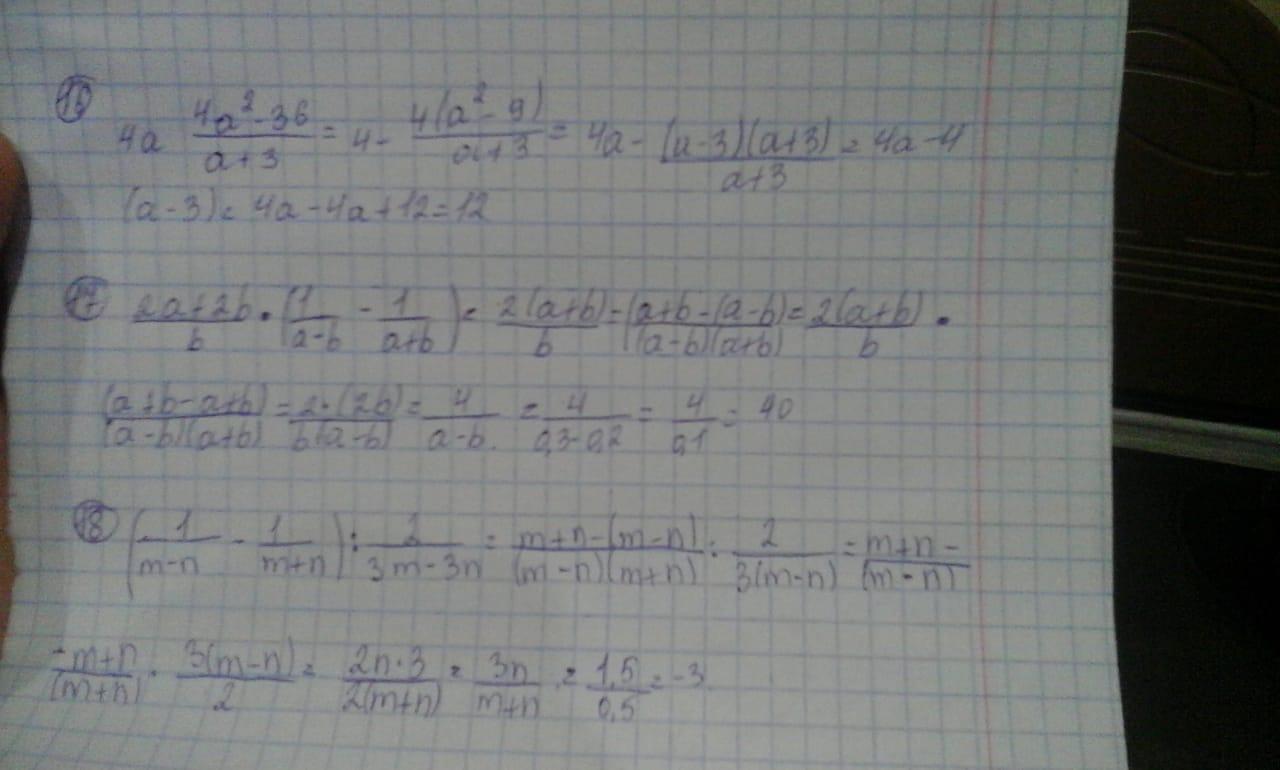 16
4a (4a²-36)/(a+3) = 4- 4(a²-9)/(a+3) = 4a - (a-3)(a+3)/(a+3) = 4a-4
(a-3) = 4a-4a+12=12
17 (2a+2b)/b · (1/(a-b) - 1/(a+b)) = 2(a+b)/b = (a+b-(a-b)/((a-b)(a+b) = 2(a+b)/b ·
(a+b-a+b)/((a-b)(a+b) = 2·(2b)/(b(a-b) = 4/(a-b) = 4/(0,3-0,2) = 4/0,1 = 40
18 (1/(m-n) - 1/(m+n)) : 2/(3m-3n) = (m+n-(m-n)/((m-n)(m+n) : 2/(3(m-n)) = (m+n-)/(m-n)
(-m+n)/(m+n) · 3(m-n)/2 = (2n·3)/(2(m+n)) = 3n/(m+n) = 1,5/0,5 = -3